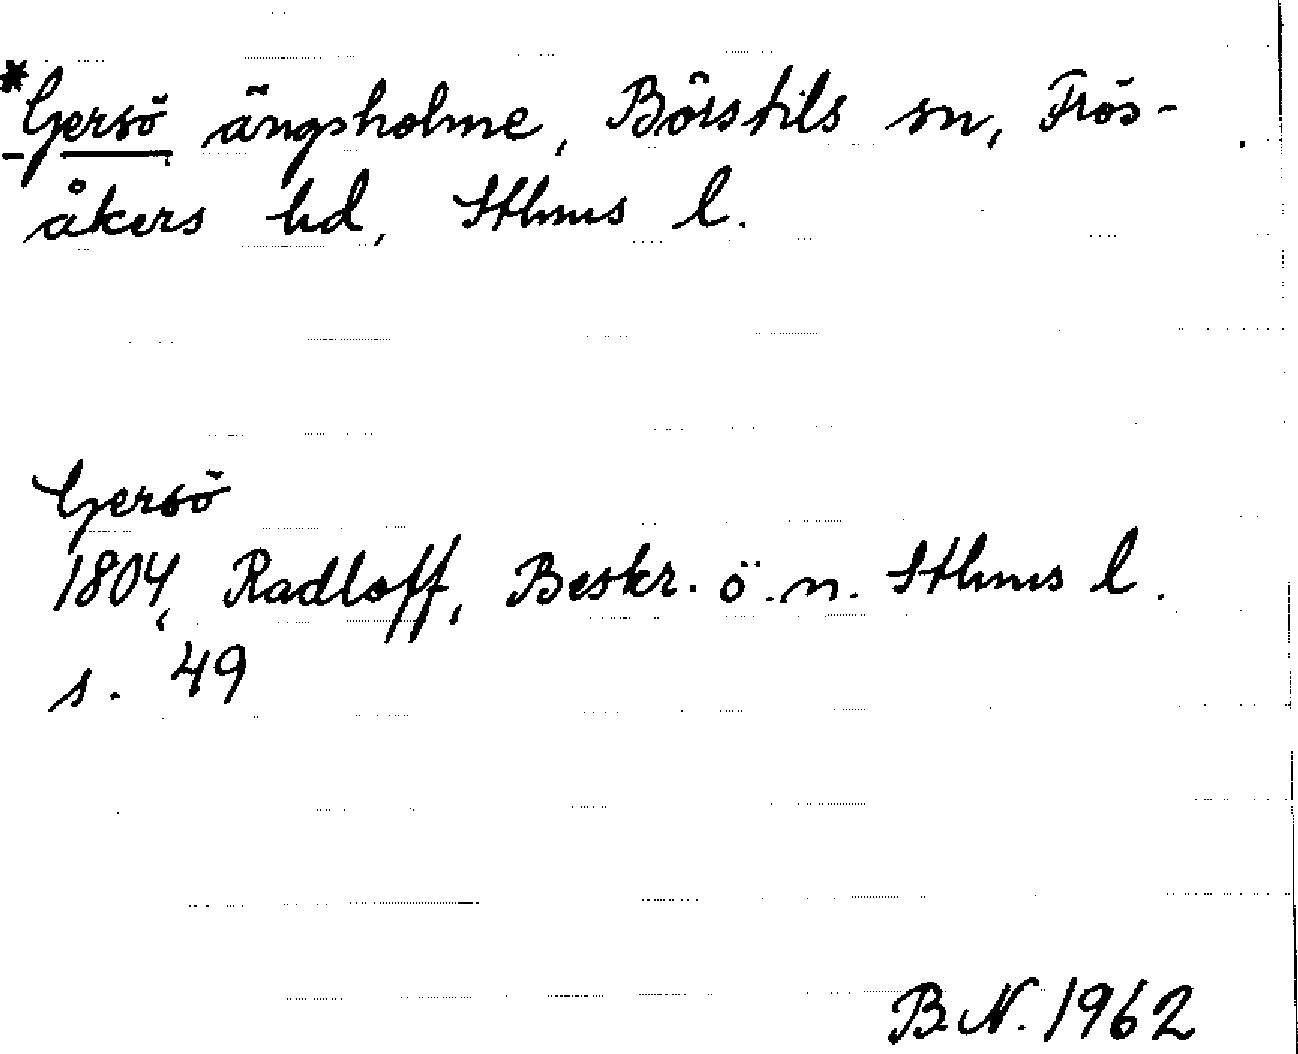 *Gersö ängsholme, Börstils sn, Frös-
åkers hd, Sthms l.
Gersö
1804, Radloff, Beskr. ö. n. Sthms l.
s. 49
B.N. 1962